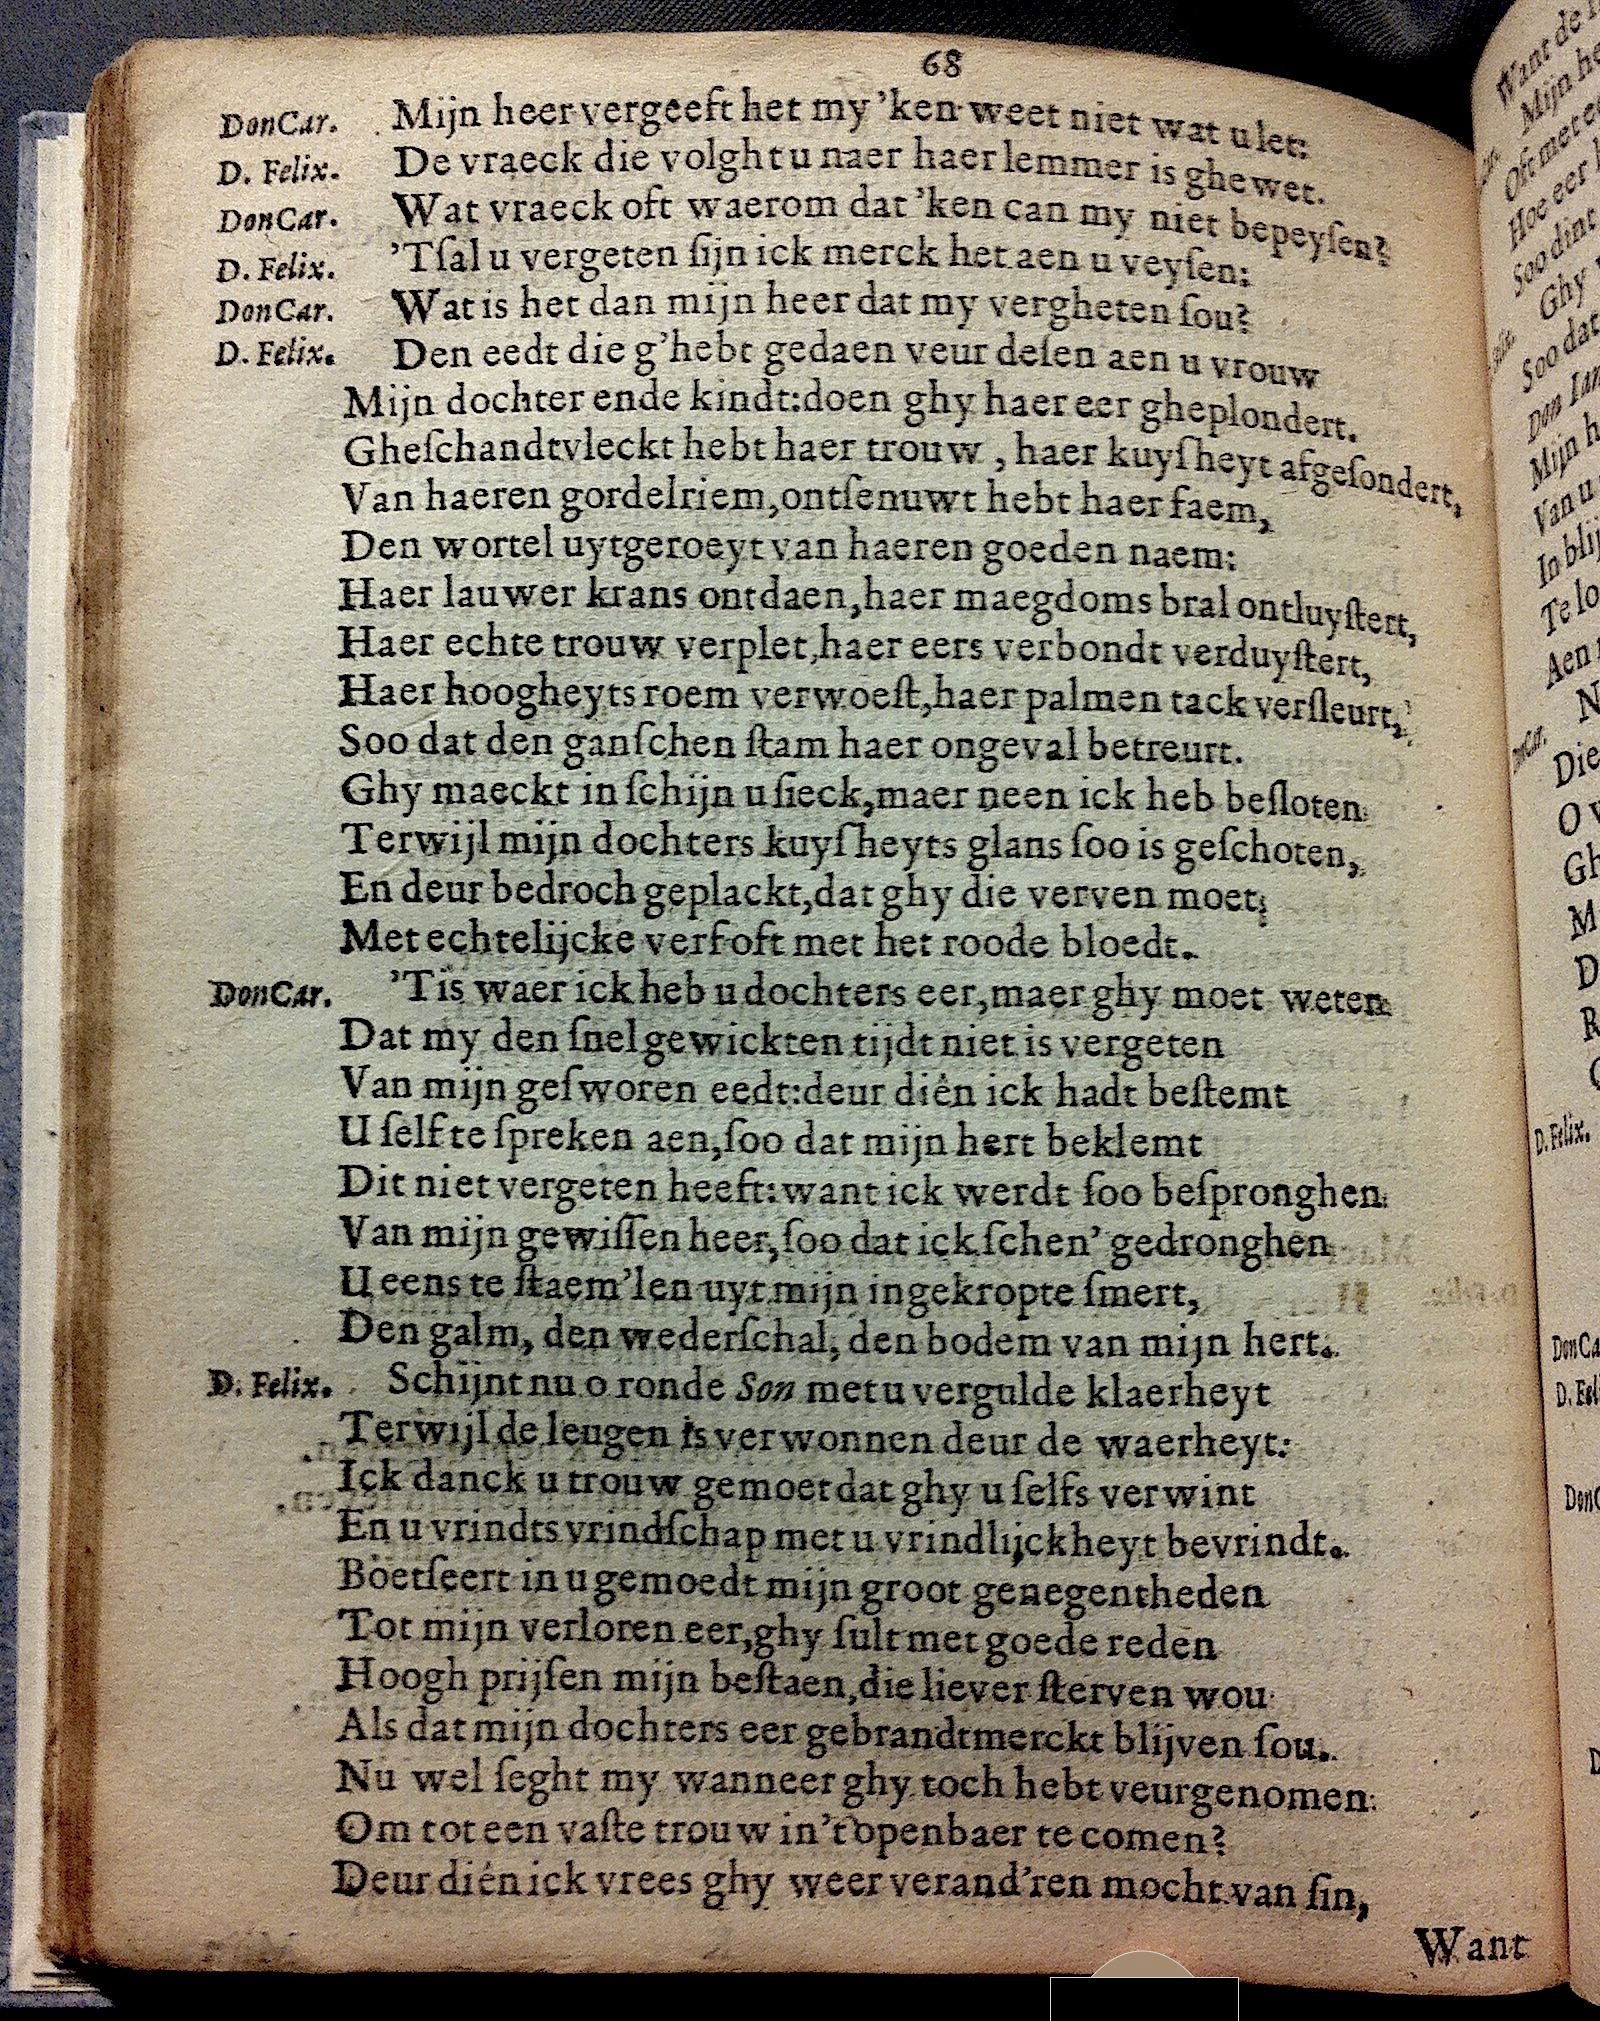 68
DonCar. Mijn heer vergeeft het my 'ken weet niet wat u let:
D. Felix. De vraeck die volght u naer haer lemmer is ghewet.
DonCar. Wat vraeck oft waerom dat 'ken can my niet bepeyſen?
D. Felix. 'Tſal u vergeten ſijn ick merck het aen u veyſen:
DonCar. Wat is het dan mijn heer dat my vergheten ſou?
D. Felix. Den eedt die g'hebt gedaen veur deſen aen u vrouw
Mijn dochter ende kindt: doen ghy haer eer gheplondert.
Gheſchandtvleckt hebt haer trouw, haer kuyſheyt afgeſondert,
Van haeren gordelriem, ontſenuwt hebt haer faem,
Den wortel uytgeroeyt van haeren goeden naem:
Haer lauwer krans ontdaen, haer maegdoms bral ontluyſtert,
Haer echte trouw verplet, haer eers verbondt verduyſtert,
Haer hoogheyts roem verwoeſt, haer palmen tack verſleurt,
Soo dat den ganſchen ſtam haer ongeval betreurt.
Ghy maeckt in ſchijn u ſieck, maer neen ick heb beſloten
Terwijl mijn dochters kuyſheyts glans ſoo is geſchoten,
En deur bedroch geplackt, dat ghy die verven moet;
Met echtelijcke verf oft met het roode bloedt.
DonCar. 'Tis waer ick heb u dochters eer, maer ghy moet weten
Dat my den ſnel gewickten tijdt niet is vergeten
Van mijn geſworen eedt: deur diên ick hadt beſtemt
U ſelf te ſpreken aen, ſoo dat mijn hert beklemt
Dit niet vergeten heeft: want ick werdt ſoo beſpronghen
Van mijn gewiſſen heer, ſoo dat ick ſchen' gedronghen
U eens te ſtaem'len uyt mijn ingekropte ſmert,
Den galm, den wederſchal, den bodem van mijn hert.
D. Felix. Schijnt nu o ronde Son met u vergulde klaerheyt
Terwijl de leugen is verwonnen deur de waerheyt:
Ick danck u trouw gemoet dat ghy u ſelfs verwint
En u vrindts vrindſchap met u vrindlijckheyt bevrindt.
Boetſeert in u gemoedt mijn groot genegentheden
Tot mijn verloren eer, ghy ſult met goede reden
Hoogh prijſen mijn beſtaen, die liever ſterven wou
Als dat mijn dochters eer gebrandtmerckt blijven ſou.
Nu wel ſeght my wanneer ghy toch hebt veurgenomen
Om tot een vaſte trouw in't openbaer te comen?
Deur diên ick vrees ghy weer verand'ren mocht van ſin,
Want